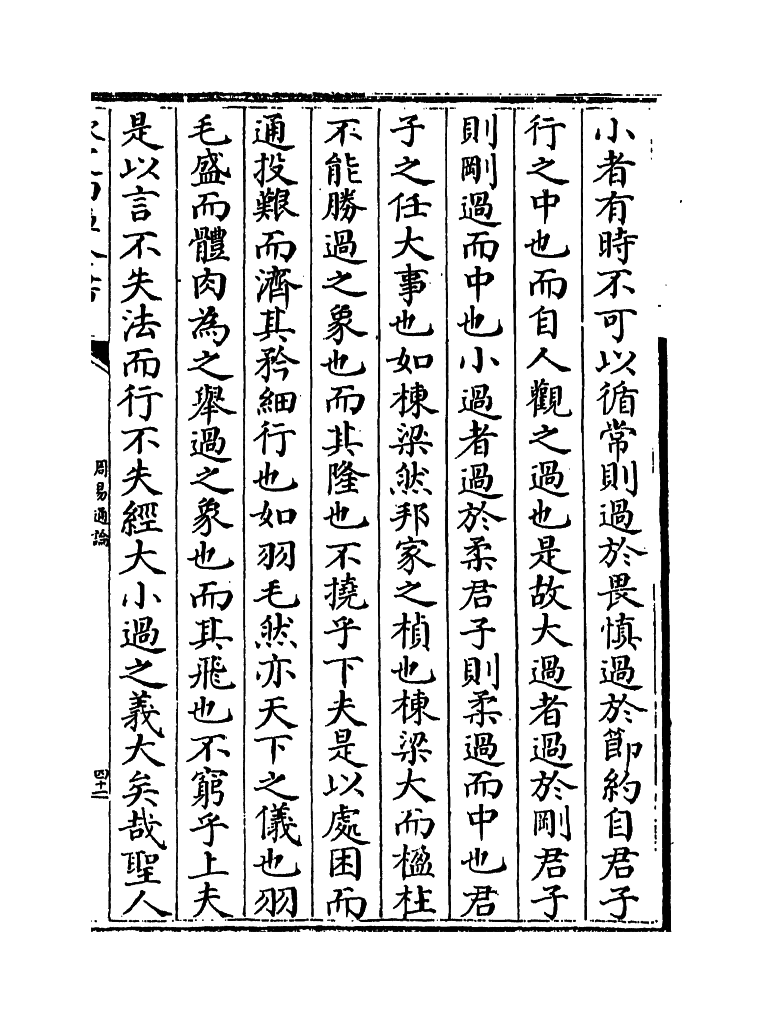 小者有時不可以循常則過於畏慎過於節約自君子
行之中也而自人觀之過也是故大過者過於剛君子
則剛過而中也小過者過於柔君子則柔過而中也君
子之任大事也如棟梁然邦家之楨也棟梁大而楹柱
不能勝過之象也而其隆也不撓乎下夫是以處困而
通投艱而濟其矜細行也如羽毛然亦天下之儀也羽
毛盛而體肉為之舉過之象也而其飛也不窮乎上夫
是以言不失法而行不失經大小過之義大矣哉聖人
周易通論
四十二